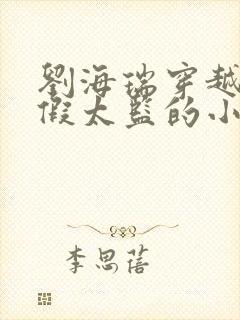 劉海瑞穿越
假太監的小
李思蓓